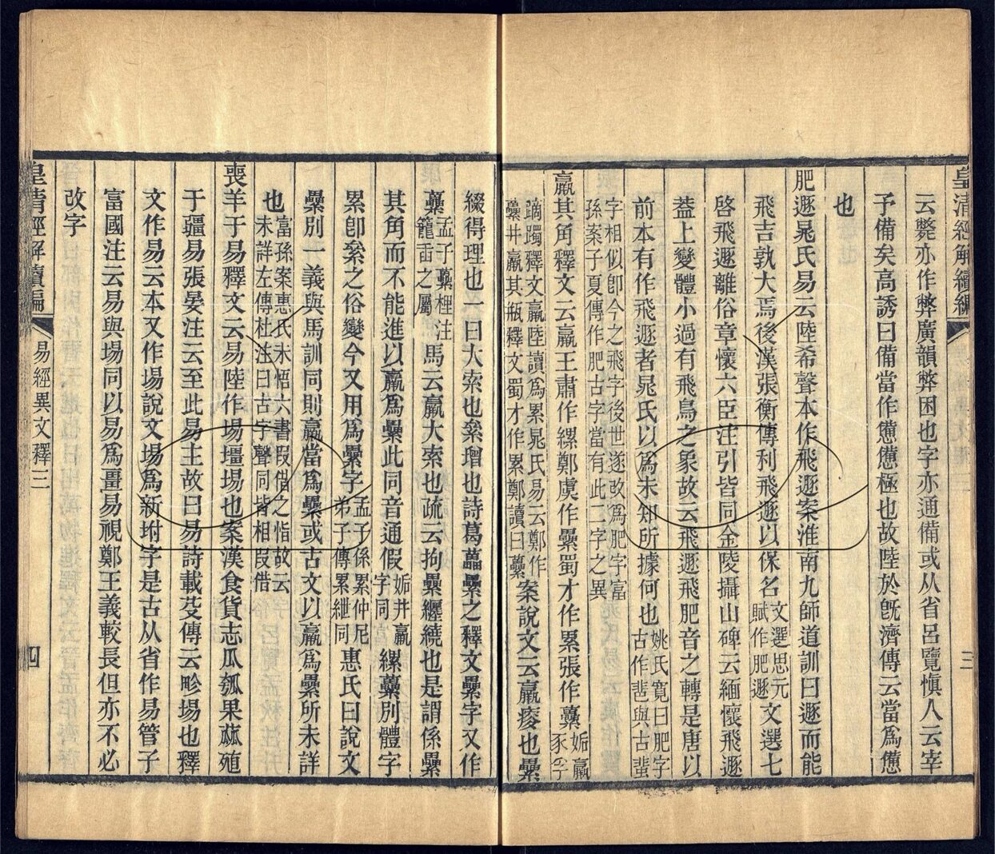 皇清經解續編
三
云斃亦作弊廣韻弊困也字亦通備或从省呂覽愼人云宰
予備矣高誘曰備當作憊憊極也故陸於旣濟傳云當爲憊
也
肥遯晁氏易云陸希聲本作飛遯案淮南九師道訓曰遯而能
飛吉孰大焉後漢張衡傳利飛遯以保名文選思元賦作肥遯文選七
啓飛遯離俗章懷六臣注引皆同金陵攝山碑云緬懷飛遯
葢上變體小過有飛鳥之象故云飛遯飛肥音之轉是唐以
前本有作飛遯者晁氏以爲未知所據何也姚氏寬曰肥字古作𦐐與古蜚
字相似卽今之飛字後世遂改爲肥字富孫案子夏傳作肥古字當有此二字之異
羸其角釋文云羸王肅作縲鄭虞作纍蜀才作累張作虆姤羸豕孚
蹢躅釋文羸陸讀爲累晁氏易云鄭作纍井羸其瓶釋文蜀才作累鄭讀曰虆案說文云羸瘦也纍
綴得理也一曰大索也絫增也詩葛藟纍之釋文纍字又作
虆孟子虆梩注籠臿之屬馬云羸大索也疏云拘纍纏繞也是謂係纍
其角而不能進以羸爲纍此同音通假姤井羸字同縲虆別體字
累卽絫之俗變今又用爲纍字孟子係累仲尼弟子傳累紲同惠氏曰說文
纍別一義與馬訓同則羸當爲纍或古文以羸爲纍所未詳
也富孫案惠氏未悟六書叚借之恉故云未詳左傳杜注曰古字聲同皆相叚借
喪羊于易釋文云易陸作場壃場也案漢食貨志瓜瓠果蓏殖
于疆易張晏注云至此易主故曰易詩載芟傳云畛場也釋
文作易云本又作場說文場爲新坿字是古从省作易管子
富國注云易與場同以易爲畺易視鄭王義較長但亦不必
改字
皇淸經解續編
易經異文釋三
四